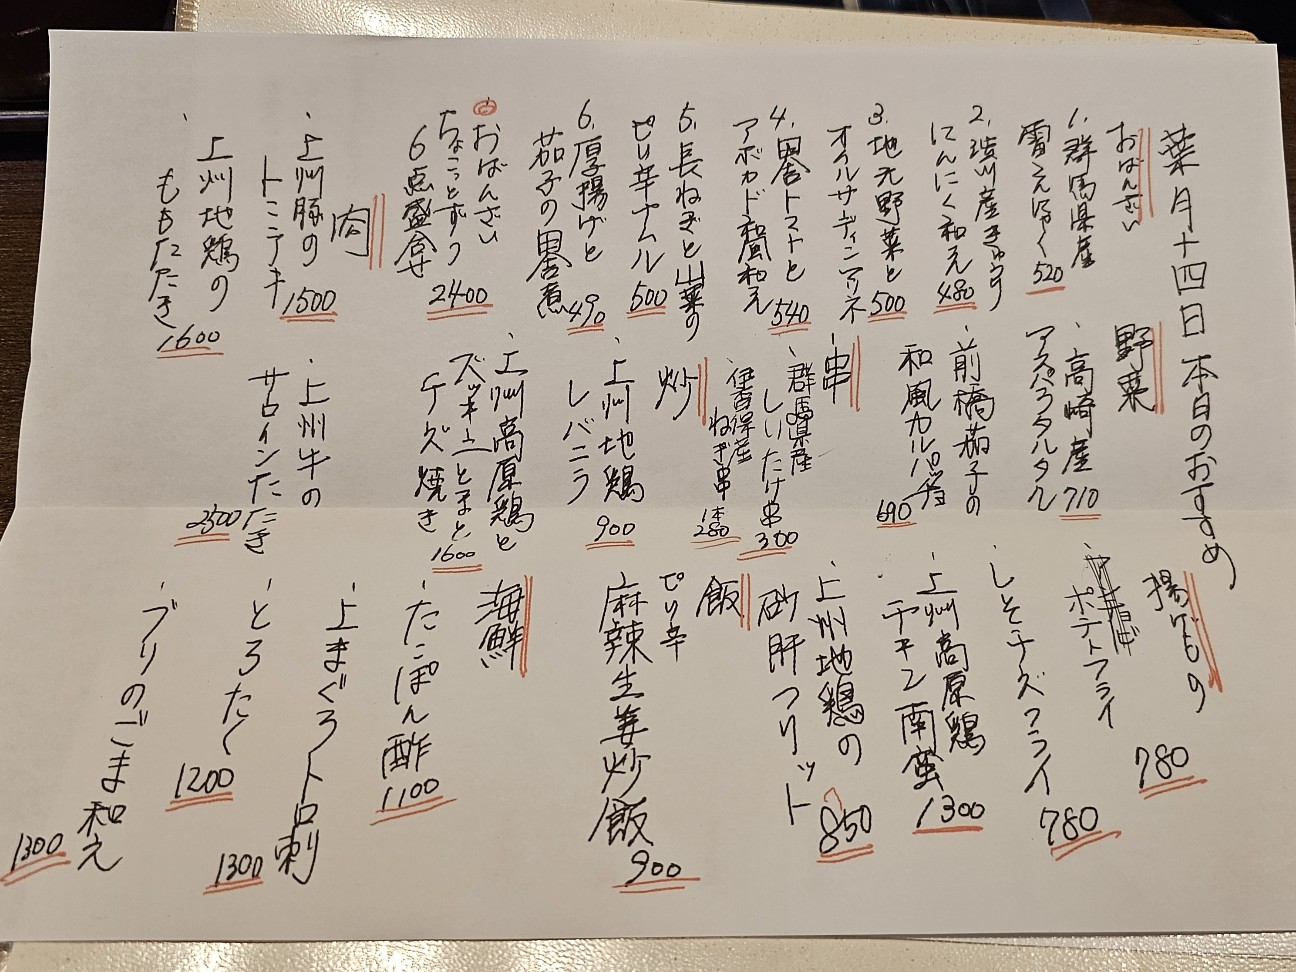 葉月十四日 本日のおすすめ
おばんざい
1. 群馬県産
雷こんにゃく 520
2. 渋川産きゅうり
にんにく和え 480
3. 地元野菜と
オイルサーディンアリネ 500
4. 田舎トマトと
アボカド和風和え 540
5. 長ねぎと山菜の
ピリ辛ナムル 500
6. 厚揚げと
茄子の田舎煮 490
おばんざい
ちょこっとずつ
6点盛合せ 2400
肉
、上州豚の
トンテキ 1500
、上州地鶏の
ももたたき 1600
野菜
、高崎産
アスパラタルタル 710
、前橋茄子の
和風カルパッチョ 690
串
、群馬県産
しいたけ串 300
伊香保産
ねぎ串 1本 280
炒
、上州地鶏
レバニラ 900
、上州高原鶏と
ズッキーニとトマト
チーズ焼き 1600
、上州牛の
サーロインたたき 2500
揚げもの
ポテトフライ 780
、しそチーズフライ 780
、上州高原鶏
チキン南蛮 1300
、上州地鶏の
砂肝フリット 850
飯
ピリ辛
麻辣生姜炒飯 900
海鮮
、たこぽん酢 1100
、上まぐろトロ刺 1300
、とろたく 1200
、ブリのごま和え 1300